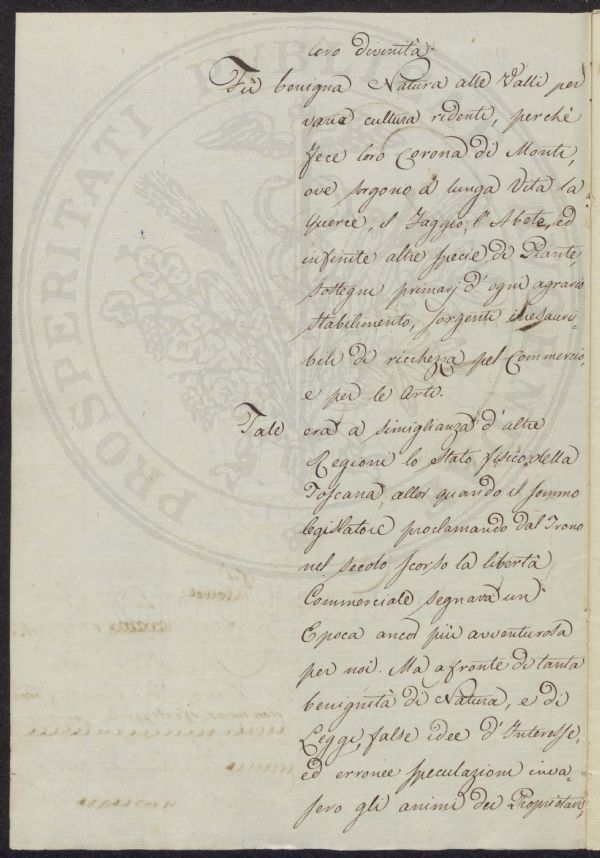 loro divinità.
Fù benigna Natura alle Valli per
varia cultura ridenti, perchè
fece loro Corona di Monti,
ove sorgono a lunga Vita la
Querce, il Faggio, l'Abete, ed
infinite altre specie di Piante,
sostegni primarj d'ogni agrario
stabilimento, sorgenti inesauri-
bili di ricchezza pel Commercio,
e per le Arti.
Tale era a simiglianza d'altre
Regioni lo stato fisico della
Toscana, allor quando il sommo
legislatore proclamando dal Trono
nel secolo scorso la libertà
Commerciale segnava un
Epoca ancor più avventurosa
per noi. Ma a fronte di tanta
benignità di Natura, e di
Leggi, false idee d'Interesse,
ed erronee speculazioni inva-
sero gli animi dei Proprietarj,
PROSPERITATI PUBLI